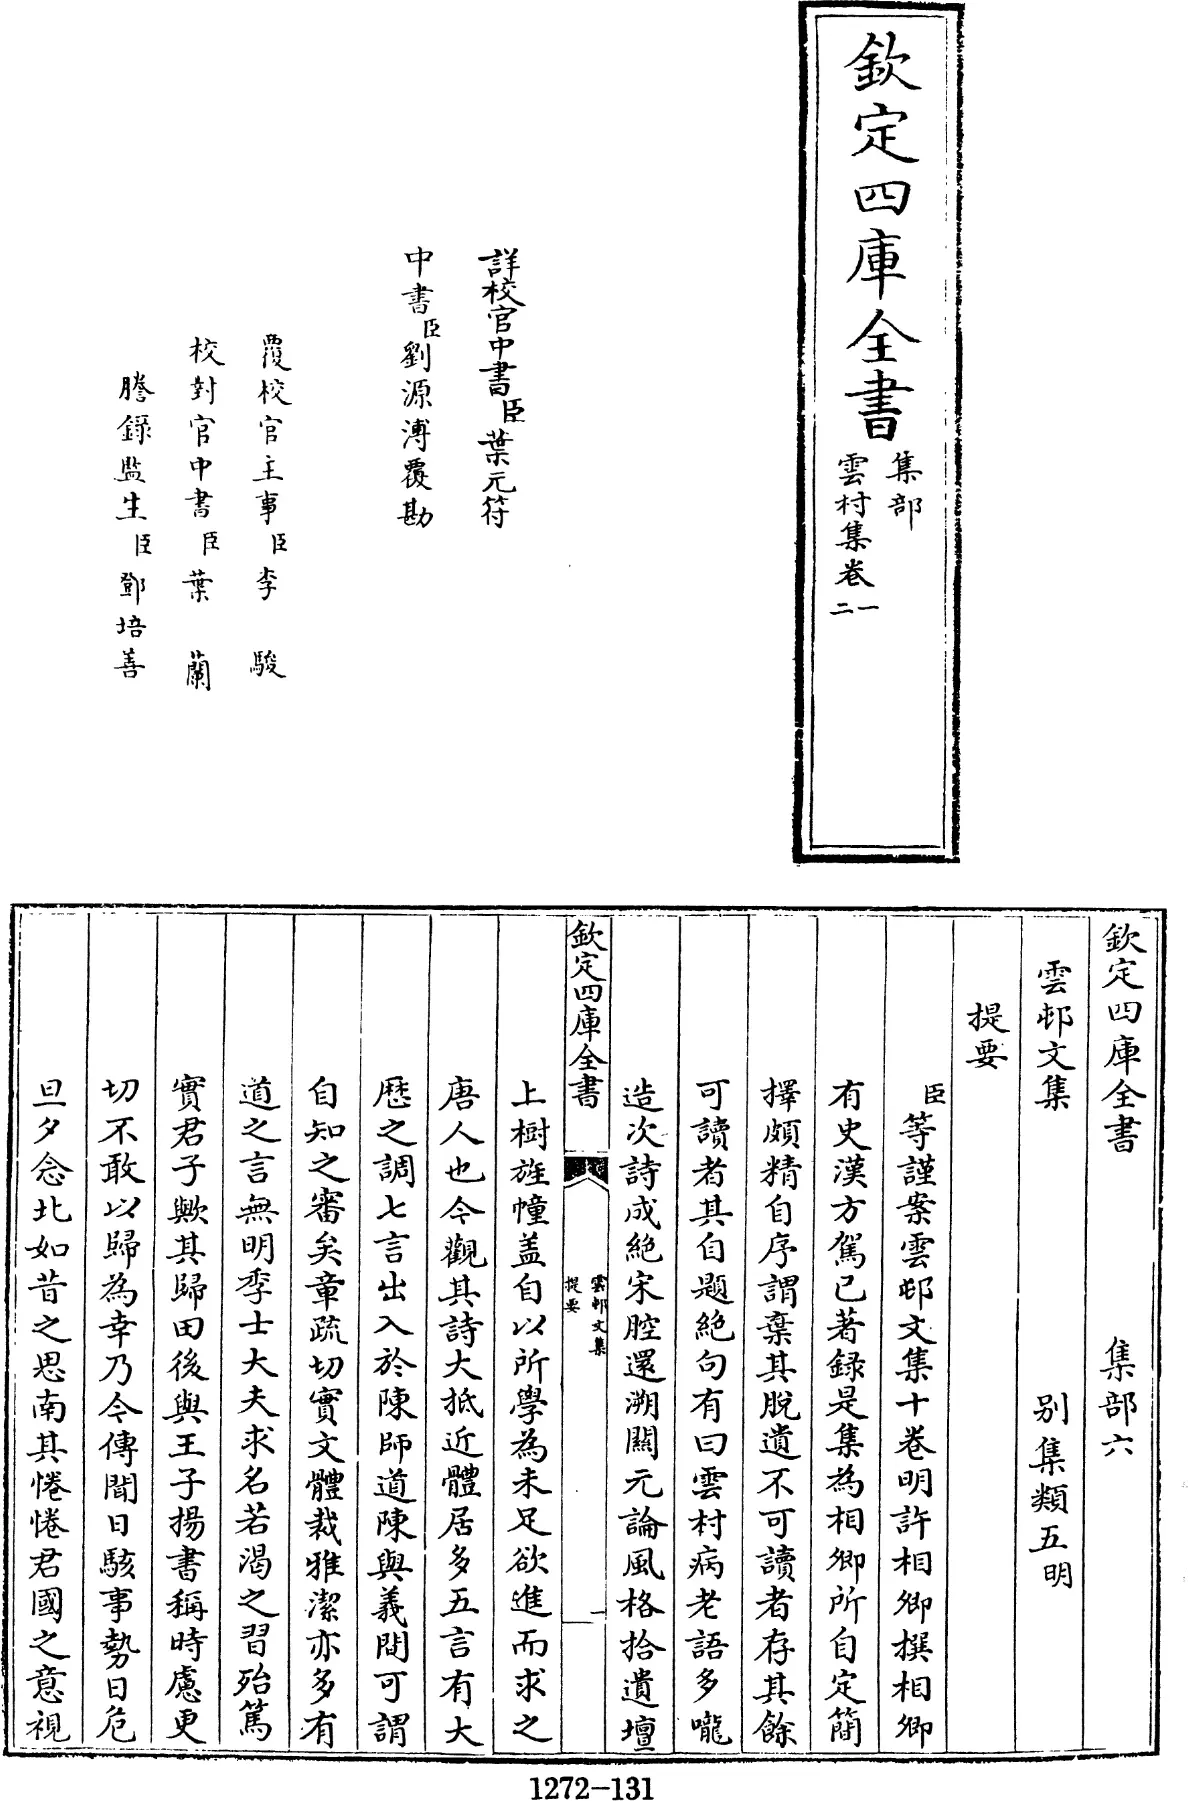 欽定四庫全書
集部
雲村集卷一
二
詳校官中書臣葉元符
中書臣劉源溥覆勘
覆校官主事臣李駿
校對官中書臣葉蘭
謄錄監生臣鄧培善
欽定四庫全書 集部六
雲邨文集 别集類五明
提要
臣等謹案雲邨文集十卷明許相卿撰相卿
有史漢方駕已著録是集為相卿所自定簡
擇頗精自序謂棄其脱遺不可讀者存其餘
可讀者其自題絶句有曰雲村病老語多嚨
造次詩成絶宋腔還溯開元論風格拾遺壇
欽定四庫全書
雲邨文集
提要
一
上樹旌幢盖自以所學為未足欲進而求之
唐人也今觀其詩大抵近體居多五言有大
歴之調七言出入於陳師道陳與義間可謂
自知之審矣章疏切實文體裁雅潔亦多有
道之言無明季士大夫求名若渴之習殆篤
實君子歟其歸田後與王子揚書稱時慮更
切不敢以歸為幸乃今傳聞日駭事勢日危
旦夕念北如昔之思南其惓惓君國之意視
1272-131